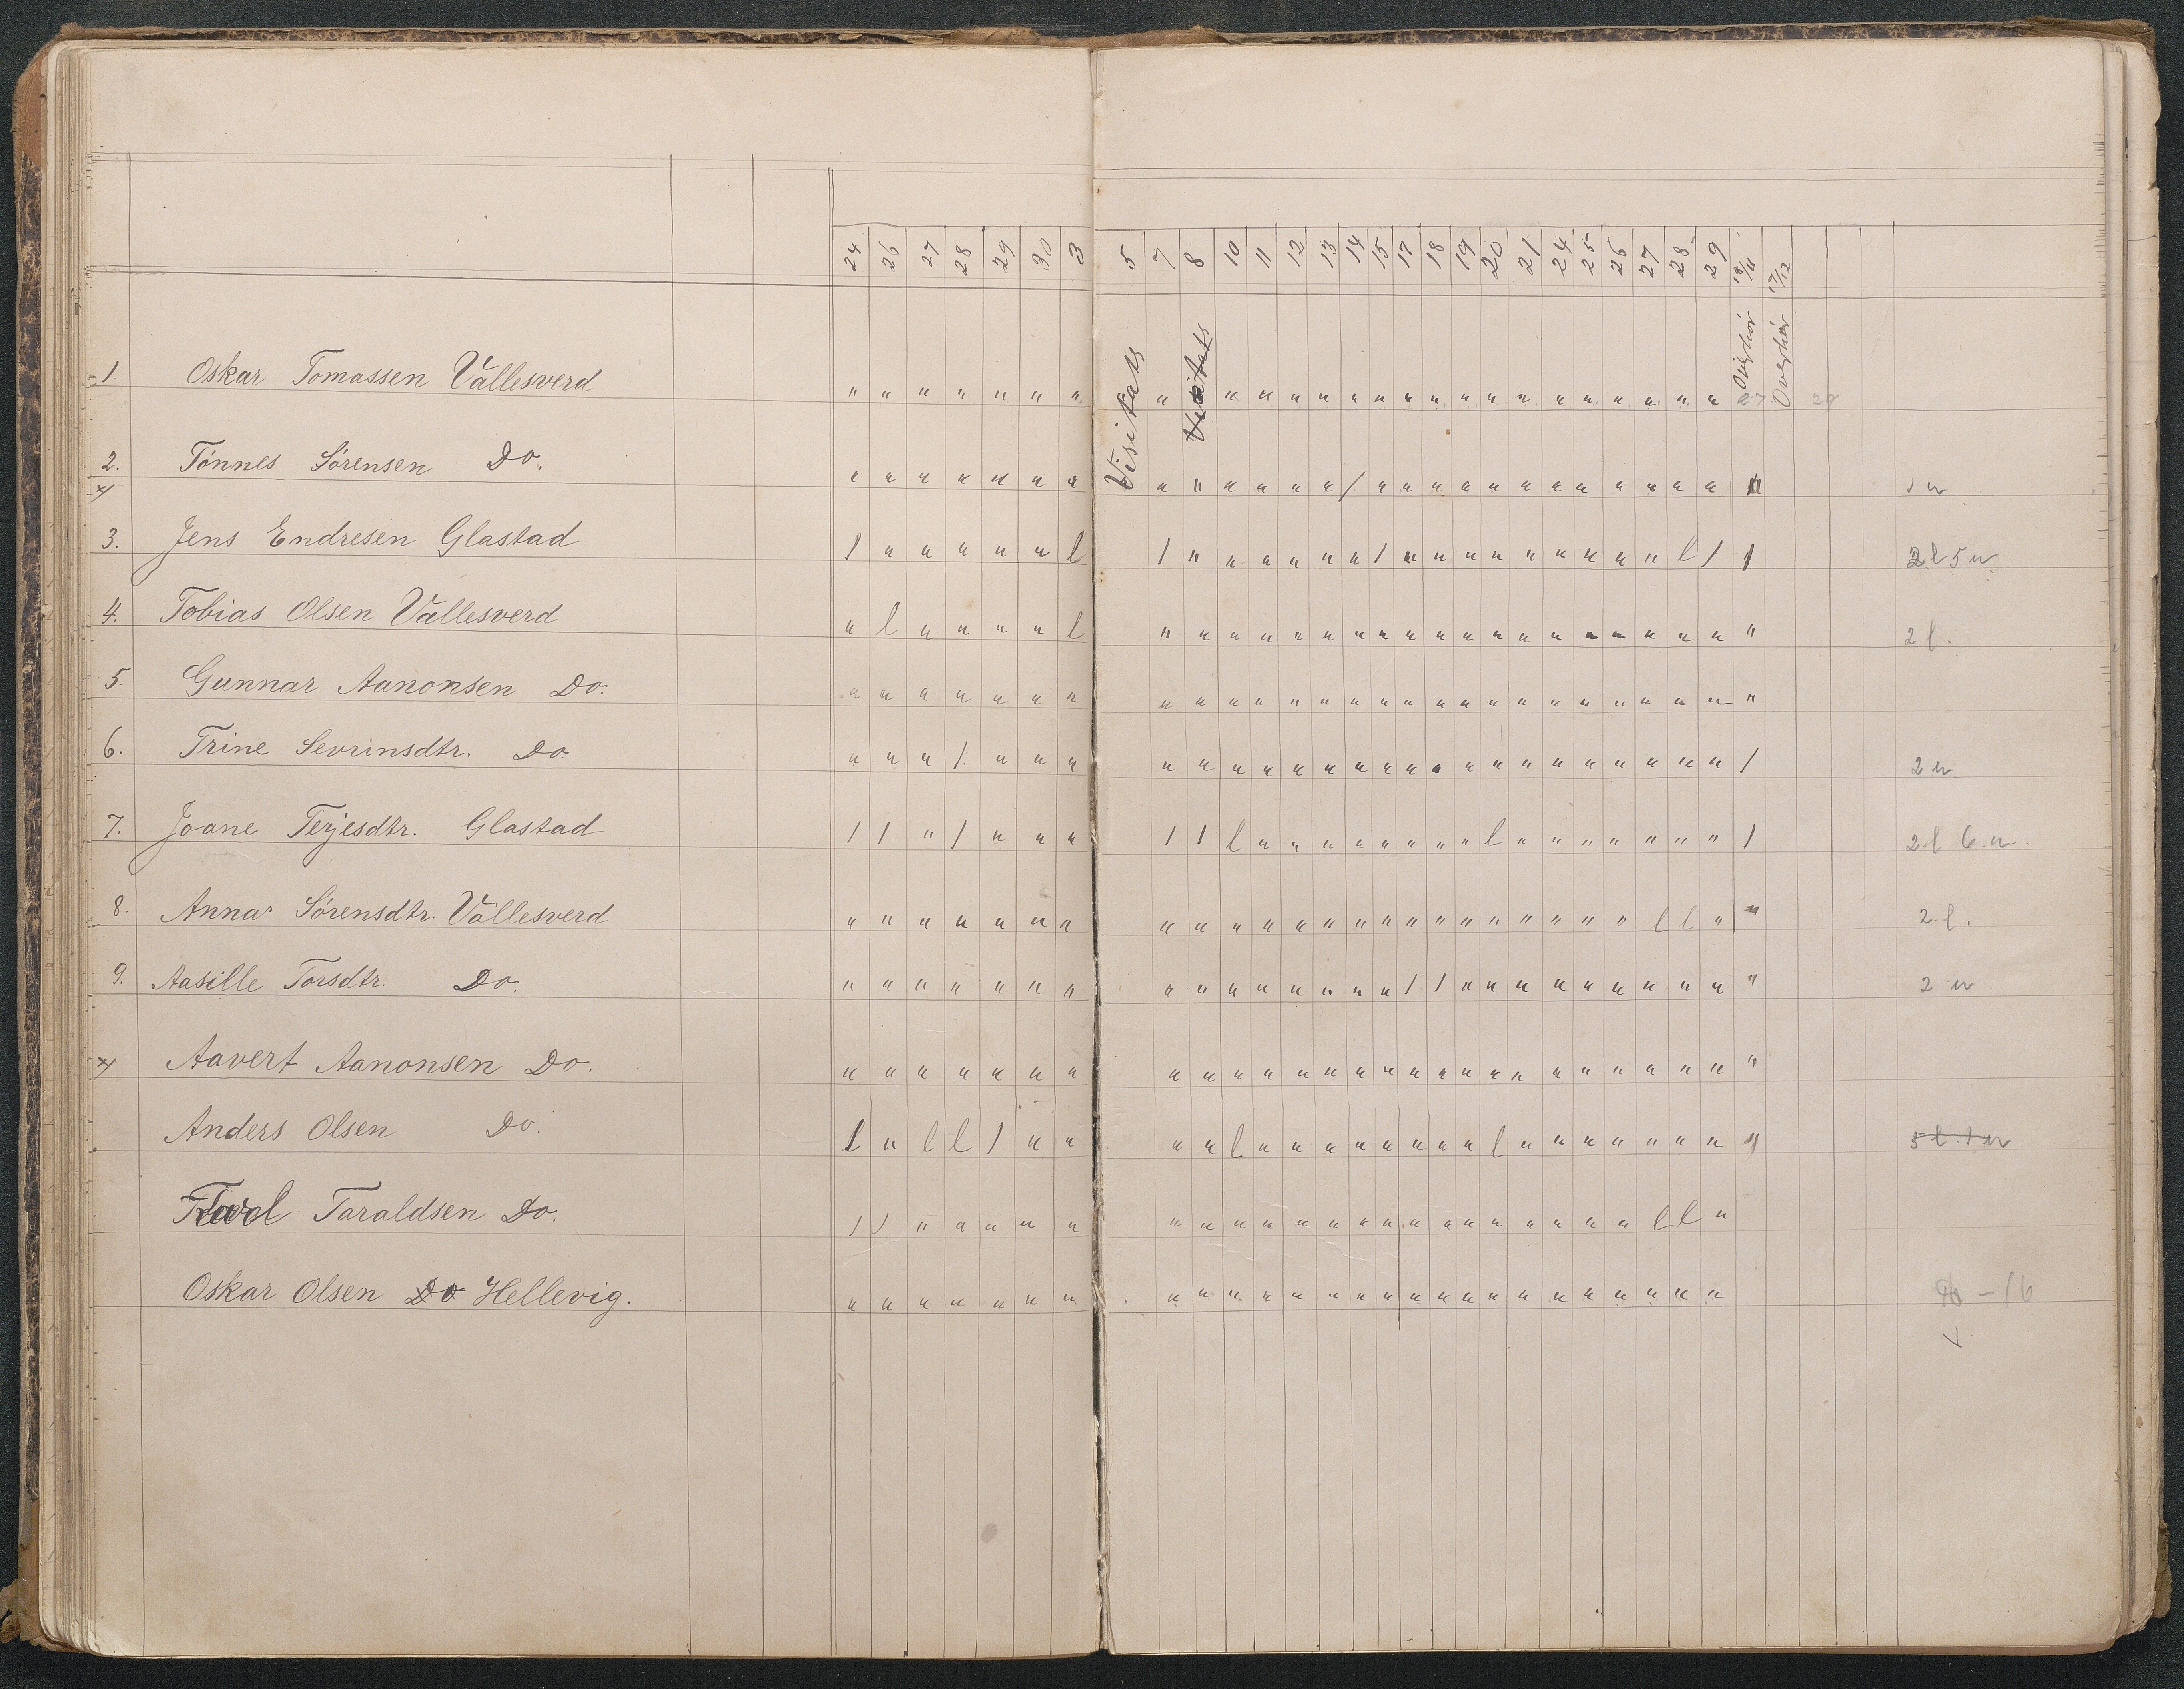 24 26 27 28 29 30 3 5 7 8 10 11 12 13 14 15 17 18 19 20 21 24 25 26 27 28 29 18/11 17/12
Visitats Visitats Overhør Overhør
1. Oskar Tomassen Vallesverd " " " " " " " " " " " " " " " " " " " " " " " " " 27 29
2. Tønnes Sørensen Do. " " " " " " " " " " " " " / " " " " " " " " " " " " " 1 u
3. Jens Endresen Glastad / " " " " " l / " " " " " " / " " " " " " " " " l / / 2 l 5 u
4. Tobias Olsen Vallesverd " l " " " " l " " " " " " " " " " " " " " " " " " " " 2 l.
5. Gunnar Aanonsen Do. " " " " " " " " " " " " " " " " " " " " " " " " " " "
6. Trine Sevrinsdtr. Do. " " " / " " " " " " " " " " " " " " " " " " " " " " / 2 u
7. Joane Terjesdtr. Glastad / / " / " " " / / l " " " " " " " " l " " " " " " " / 2 l 6 u.
8. Anna Sørensdtr. Vallesverd " " " " " " " " " " " " " " " " " " " " " " " l l " " 2 l.
9. Aasille Torsdtr. Do. " " " " " " " " " " " " " " " / / " " " " " " " " " " 2 u
Aavert Aanonsen Do. " " " " " " " " " " " " " " " " " " " " " " " " " " "
Anders Olsen Do. l " l l / " " " " l " " " " " " " " l " " " " " " " " 5 l. 1 u
Taraldsen Do. / / " " " " " " " " " " " " " " " " " " " " " l l "
Oskar Olsen Do Hellevig. " " " " " " " " " " " " " " " " " " " " " " " " " "